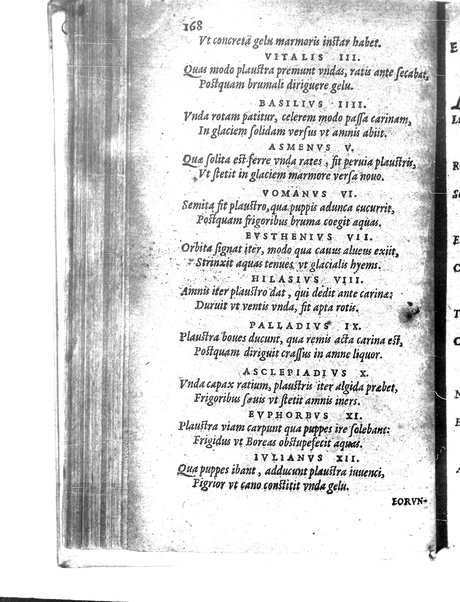 168
Vt concreta gelu marmoris instar habet.
VITALIS III.
Quas modo plaustra premunt vndas, ratis ante secabat,
Postquam brumali diriguere gelu.
BASILIVS IIII.
Vnda rotam patitur, celerem modo passa carinam,
In glaciem solidam versus vt amnis abiit.
ASMENVS V.
Quæ solita est ferre vnda rates, fit peruia plaustris,
Vt stetit in glaciem marmore versa nouo.
VOMANVS VI.
Semita fit plaustro, qua puppis adunca cucurrit,
Postquam frigoribus bruma coegit aquas.
EVSTHENIVS VII.
Orbita signat iter, modo qua cauus alueus exiit,
Strinxit aquas tenues vt glacialis hyems.
HILASIVS VIII.
Amnis iter plaustro dat, qui dedit ante carinæ;
Duruit vt ventis vnda, fit apta rotis.
PALLADIVS IX.
Plaustra boues ducunt, qua remis acta carina est,
Postquam diriguit crassus in amne liquor.
ASCLEPIADIVS X.
Vnda capax ratium, plaustris iter algida præbet,
Frigoribus sæuis vt stetit amnis iners.
EVPHORBVS XI.
Plaustra viam carpunt qua puppes ire solebant:
Frigidus vt Boreas obstupefecit aquas.
IVLIANVS XII.
Qua puppes ibant, adducunt plaustra iuuenci,
Pigrior vt cano constitit vnda gelu.
EORVN-